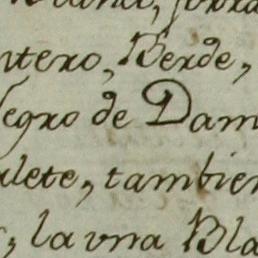 ntero, Berde,
Negro de Dam
lete, tambien
la vna Bla